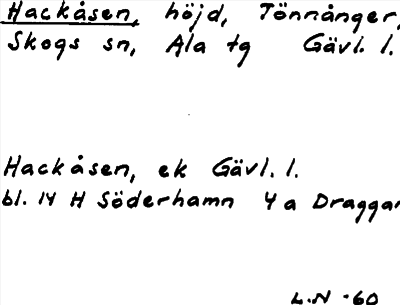 Hackåsen, höjd, Tönnånger,
Skogs sn, Ala tg Gävl. l.
Hackåsen, ek Gävl. l.
bl. 14 H Söderhamn 4 a Draggan
L.N -60